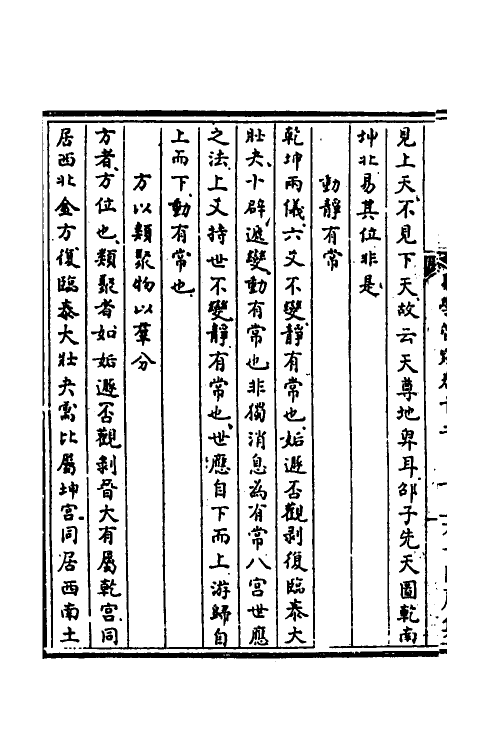 見上天不見下天故云天尊地卑耳邵子先天圖乾南
坤北易其位非是
動靜有常
乾坤兩儀六爻不變靜有常也姤遯否觀剥復臨泰大
壯夬小辟遞變動有常也非獨消息為有常八宫世應
之法上爻持世不變靜有常也世應自下而上游歸自
上而下動有常也
方以類聚物以羣分
方者方位也類聚者如姤遯否觀剥晉大有屬乾宫同
居西北金方復臨泰大壯夬需比屬坤宫同居西南土